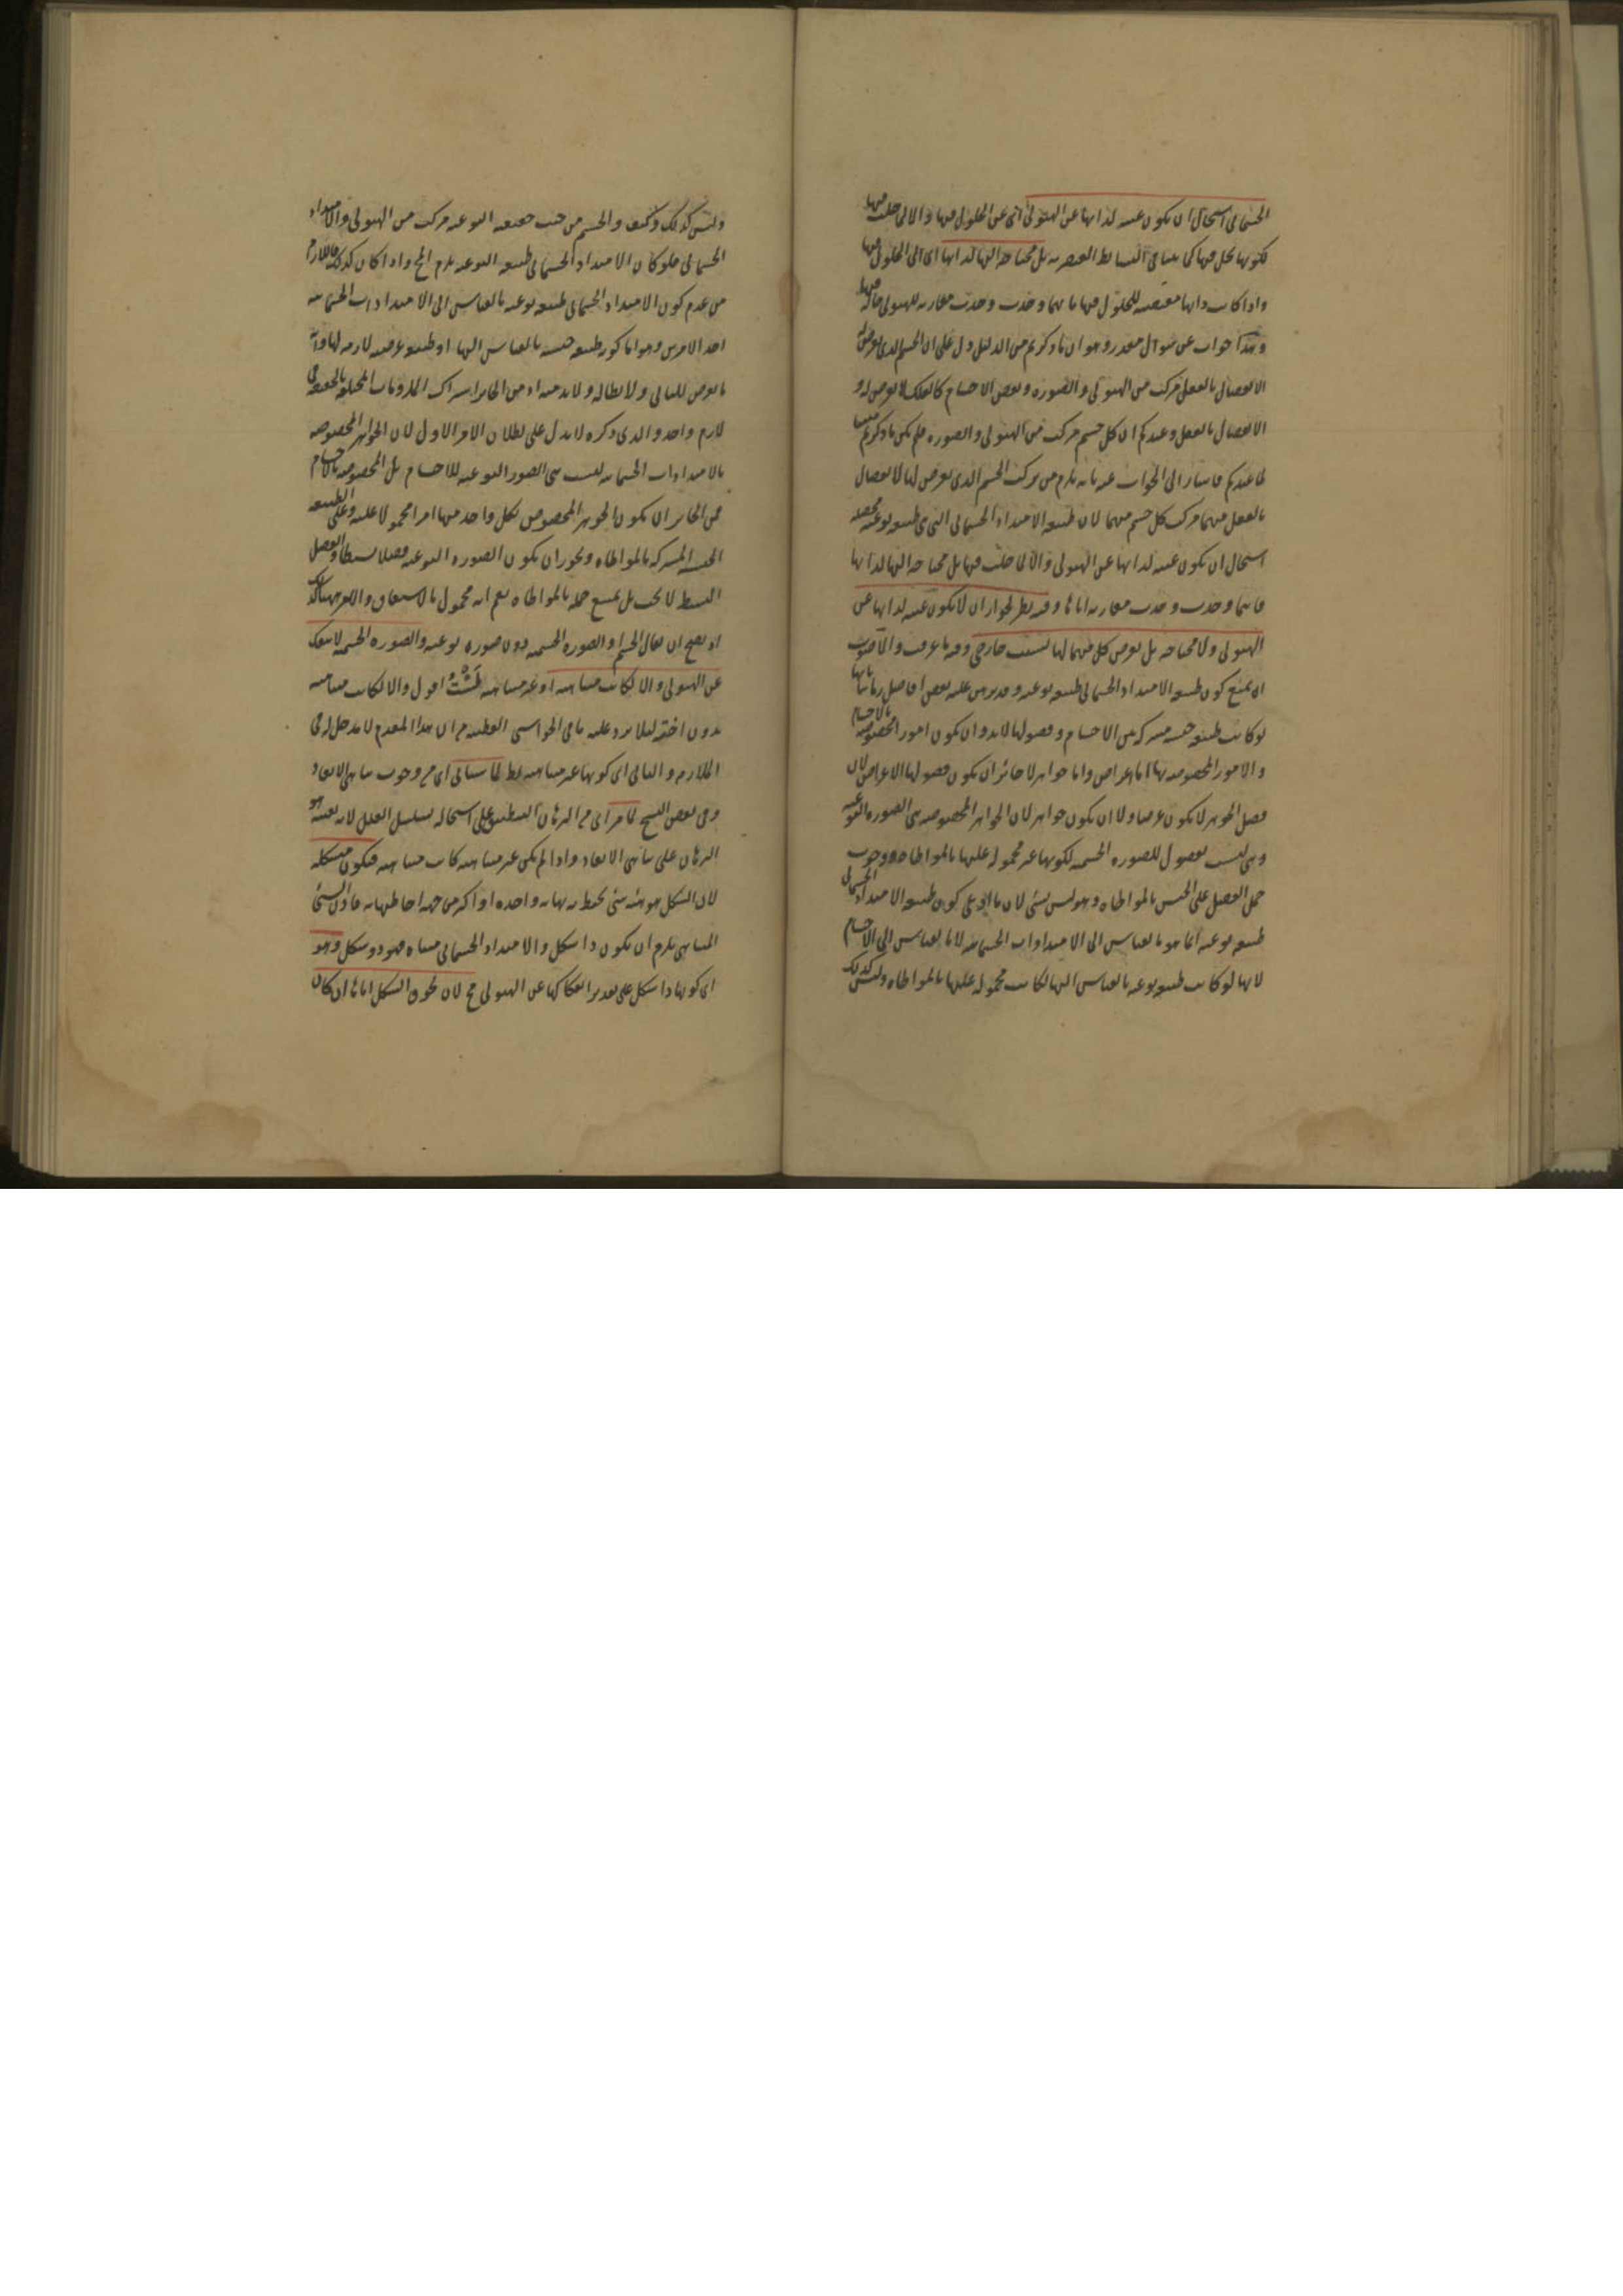 الجسماني استحال ان يكون غنيه لذاتها عن الهيولى اى عن الحلول فيها والا لما حلت فيها
لكونها تحل فيها كما فى البسائط العنصريه بل محتاجه اليها لذاتها اى الى الحلول فيها
واذا كانت ذاتها مقتضيه للحلول فيها فاينما وجدت وجدت مقارنه للهيولى حاله فيها
وهذا جواب عن سوال مقدر وهو ان ما ذكرتم من الدليل دل على ان الجسم الذى يعرض له
الانفصال بالفعل مركب من الهيولى والصوره وبعض الاجسام كالفلك لا يعرض له
الانفصال بالفعل وعندكم ان كل جسم مركب من الهيولى والصوره فلم يكن ما ذكرتم مثبتا
لما عندكم فاشار الى الجواب عنه بانه يلزم من تركب الجسم الذى يعرض لها الانفصال
بالفعل منهما تركب كل جسم منهما لان طبيعه الامتداد الجسمانى التى هى طبيعه نوعيه محصله
استحال ان تكون غنيه لذاتها عن الهيولى والا لما حلت فيها بل محتاجه اليها لذاتها
فاينما وجدت وجدت مقارنه اياها وفيه نظر لجواز ان لا تكون غنيه لذاتها عن
الهيولى ولا محتاجه بل يعرض كل منهما لها لسبب خارجى وفيه ما عرفت والاصوب
ان يمنع كون طبيعه الامتداد الجسمانى طبيعه نوعيه وقد برهن عليه بعض افاضل زماننا بانها
لو كانت طبيعه جنسيه مشتركه بين الاجسام وفصولها لا بد وان تكون امور المخصوصه بالاجسام
والامور المخصوصه بها اما اعراض واما جواهر لا جائز ان يكون فصولها الاعراض لان
فصل الجوهر لا يكون عرضا ولا ان يكون جواهر لان الجواهر المخصوصه هى الصوره النوعيه
وهى ليست بفصول للصوره الجسميه لكونها غير محموله عليها بالمواطاه ووجوب
حمل الفصل على الجنس بالمواطاه وهو ليس بشى لان كون طبيعه الامتداد الجسمانى
طبيعه نوعيه انما هو بالقياس الى الامتدادات الجسمانيه لا بالقياس الى الاجسام
لانها لو كانت طبيعه نوعيه بالقياس اليها لكانت محموله عليها بالمواطاه وليس كذلك
وليس كذلك وكيف والجسم من حيث حقيقته النوعيه مركب من الهيولى والامتداد
الجسمانى فلو كان الامتداد الجسمانى طبيعه النوعيه يلزم المح واذا كان كذلك فاللازم
من عدم كون الامتداد الجسمانى طبيعه نوعيه بالقياس الى الامتدادات الجسمانيه
احد الامرين وهو اما كونه طبيعه جنسيه بالقياس اليها او طبيعه عرضيه لازمه لها وانه
ما تعرض للثانى ولا لابطاله ولا بد منه اذ من الجائز اشتراك الملزومات المختلفه بالحقيقه فى
لازم واحد والذى ذكره لا يدل على بطلان الامر الاول لان الجواهر المخصوصه
بالامتدادات الجسمانيه ليست هى الصور النوعيه للاجسام بل المخصوصه بالاجسام
فمن الجائز ان يكون الجوهر المخصوص لكل واحد منها امرا محمولا عليه وعلى الطبيعه
الجنسيه المشتركه بالمواطاه ويجوز ان يكون الصوره النوعيه فصلا بسيطا والفصل
البسيط لا يجب بل يمتنع حمله بالمواطاه نعم انه محمول بالاشتقاق والامر ههنا كذلك
اذ يصح ان يقال الجسم او الصوره الجسميه ذو صوره نوعيه والصوره الجسميه لا تنفك
عن الهيولى والا لكانت متناهيه او غير متناهيه اقول والا لكانت متناهيه
بدون اخته لئلا يرد عليه ما فى الحواشى القطبيه من ان هذا المقدم لا مدخل له فى
التلازم والتالى اى كونها غير متناهيه بط لما سياتى اى من وجوب تناهى الابعاد
وفى بعض النسخ لما مر اى من البرهان التطبيقى على استحاله تسلسل العلل لانه بعينه هو
البرهان على تناهى الابعاد واذا لم يكن غير متناهيه كانت متناهيه فيكون متشكله
لان الشكل هو هيئه شى يحيط به نهايه واحده او اكثر من جهه احاطتها به فاذن الشى
المتناهى يلزم ان يكون ذا شكل والامتداد الجسمانى متناه فهو ذو شكل وهو
اى كونها ذا شكل على تقدير انفكاكها عن الهيولى مح لان لحوق الشكل اياها ان كان